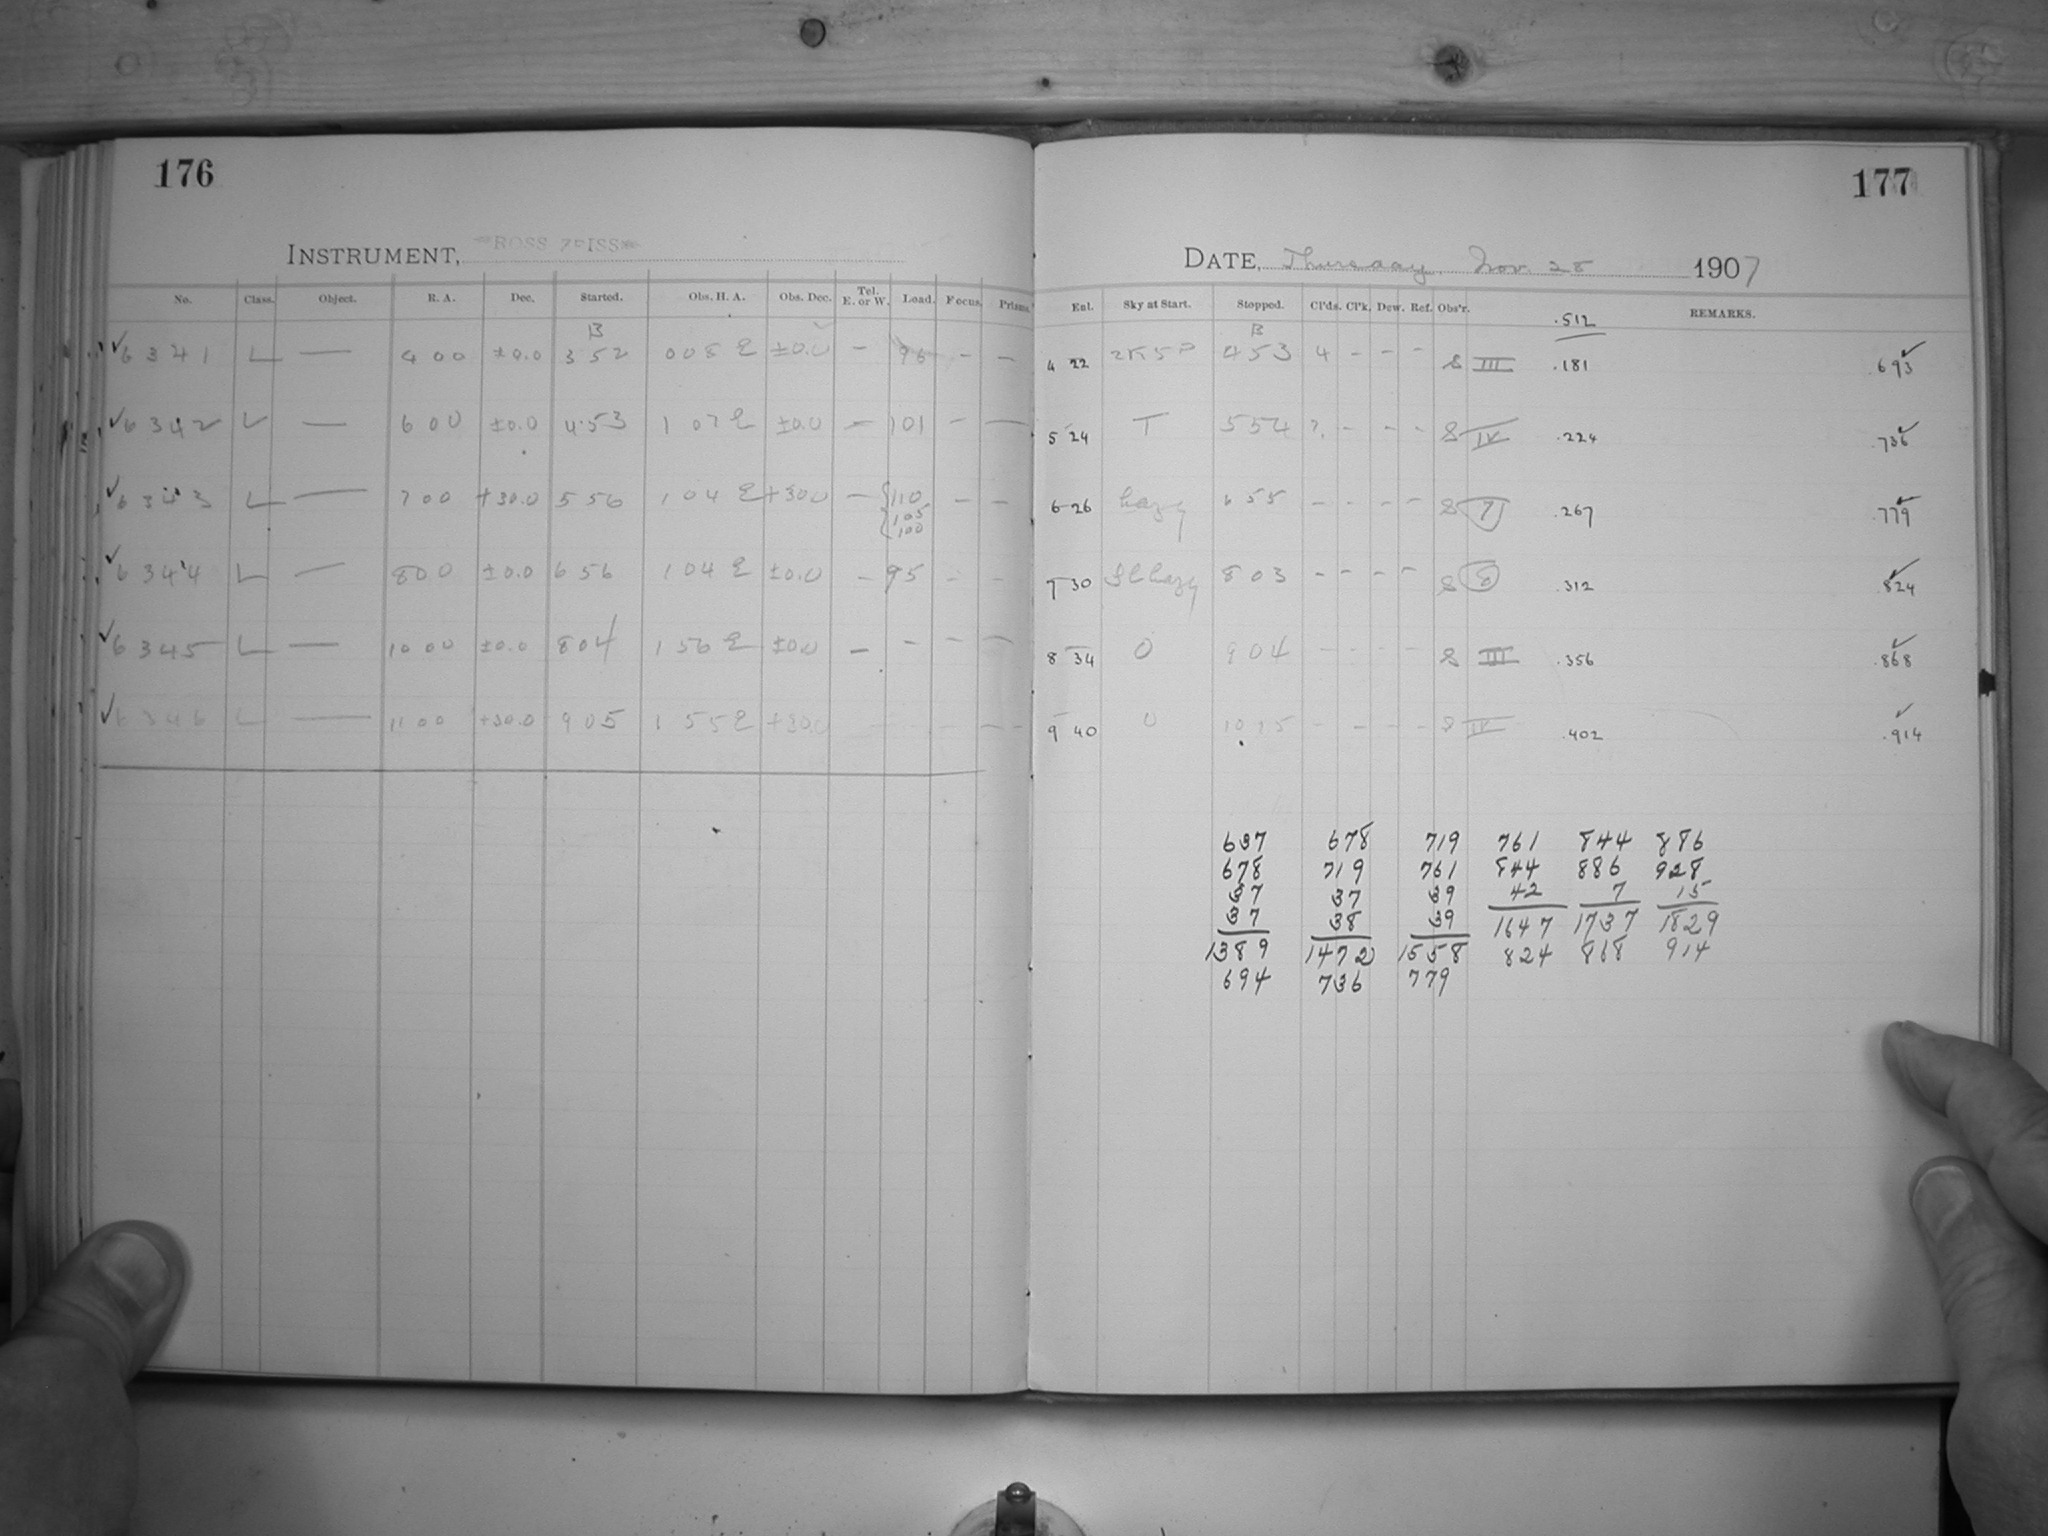 176
INSTRUMENT, ROSS ZEISS
No. Class. Object. R. A. Dec. Started. Obs. H. A. Obs. Dec. Tel. E. or W. Load. Focus. Prisms.
B
✓ 6341 L — 4 00 ±0.0 3 52 0 08 E ±0.0 — 96 — —
✓ 6342 L — 6 00 ±0.0 4 53 1 07 E ±0.0 — 101 — —
✓ 6343 L — 7 00 +30.0 5 56 1 04 E +30.0 — 110 — —
105
100
✓ 6344 L — 8 00 ±0.0 6 56 1 04 E ±0.0 — 95 — —
✓ 6345 L — 10 00 ±0.0 8 04 1 56 E ±0.0 — — — —
✓ 6346 L — 11 00 +30.0 9 05 1 55 E +30.0 — — — —
177
DATE, Thursday, Nov. 28 1907
Enl. Sky at Start. Stopped. Cl'ds. Cl'k. Dew. Ref. Obs'r. REMARKS.
.512
B
4 22 4 53 4 — — — S III .181 .693 ✓
5 24 T 5 54 ?. — — — S IV .224 .736 ✓
6 26 hazy 6 55 — — — — S 7 .267 .779 ✓
7 30 Sl hazy 8 03 — — — — S 8 .312 .824 ✓
8 34 0 9 04 — — — — S III .356 .868 ✓
9 40 0 10 15 — — — — S IV .402 .914 ✓
637 678 719 761 844 886
678 719 761 844 886 928
37 37 39 42 7 15
37 38 39 1647 1737 1829
1389 1472 1558 824 868 914
694 736 779